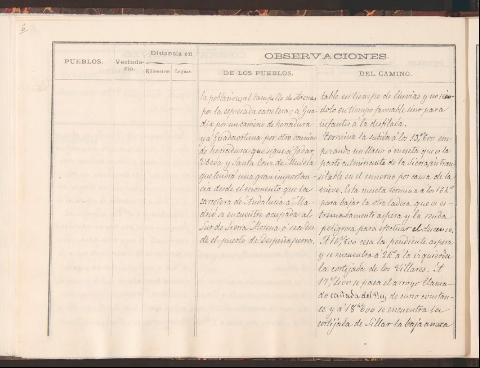 PUEBLOS.
Vecindario.
Distancia en
Kilómetros
Leguas.
OBSERVACIONES
DE LOS PUEBLOS.
DEL CAMINO.
por la espresada carretera; a Gua
dix por un camino de herradura
y a Guadahortuna por otro camino
de herradura que sigue a Jodar,
Ubeda y Santa Cruz de Mudela
que tendria una gran importan
cia desde el momento que la
carretera de Andalucia a Ma
drid se encuentre ocupada al
Sur de Sierra Morena o sea des
de el puerto de Despeñaperros.
table en tiempo de lluvias y no sien
do lo en tiempo favorable sino para
infanteria a la desfilada.
Termina la subida a los 13,500 em
pezando un llano o meseta que es la
parte culminante de la Sierra, intran
sitable en el invierno por causa de la
nieve. Esta meseta termina a los 16 K.
para bajar la otra ladera que es es
tremadamente aspera y la senda
peligrosa para efectuar el descenso.
cesa la pendiente aspera
y se encuentra a 2 K. a la izquierda
la cortijada de los Villares. A
se pasa el arroyo llama
do cañada del de curso constan
te y a 18,500 se encuentra la
cortijada de Sillar la baja a una